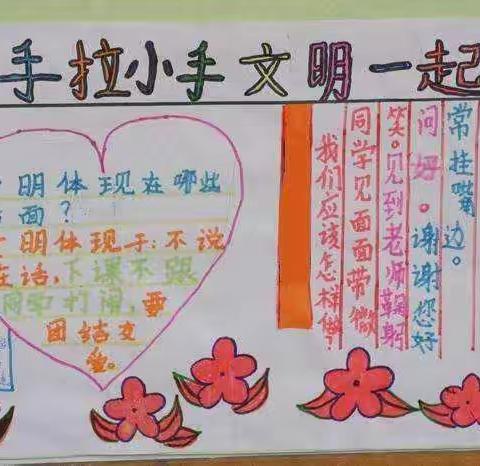 手拉小手文明一起
明体现在哪些
面?
明体现于:不说
话,下课不跟
同学打闹,要
团结友
爱。
我们应该怎样做?
同学见面面带微
笑。见到老师鞠躬
问好。谢谢您好
常挂嘴边。